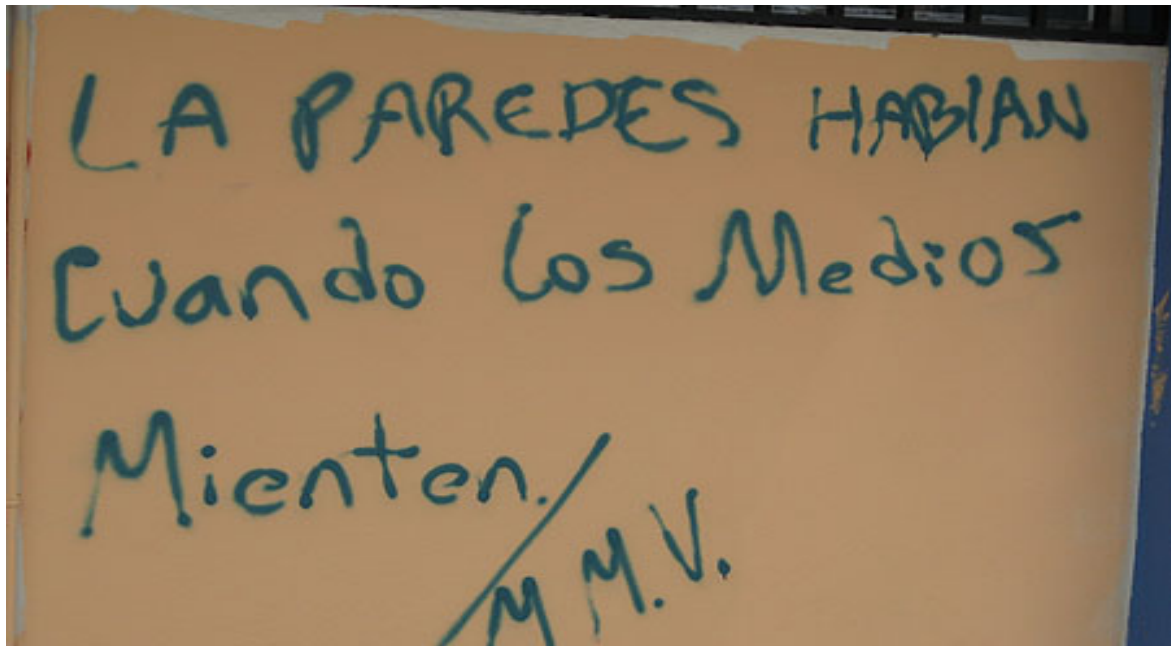 LA PAREDES HABlAN
Cuando los Medios
Mienten.
/M M.V.